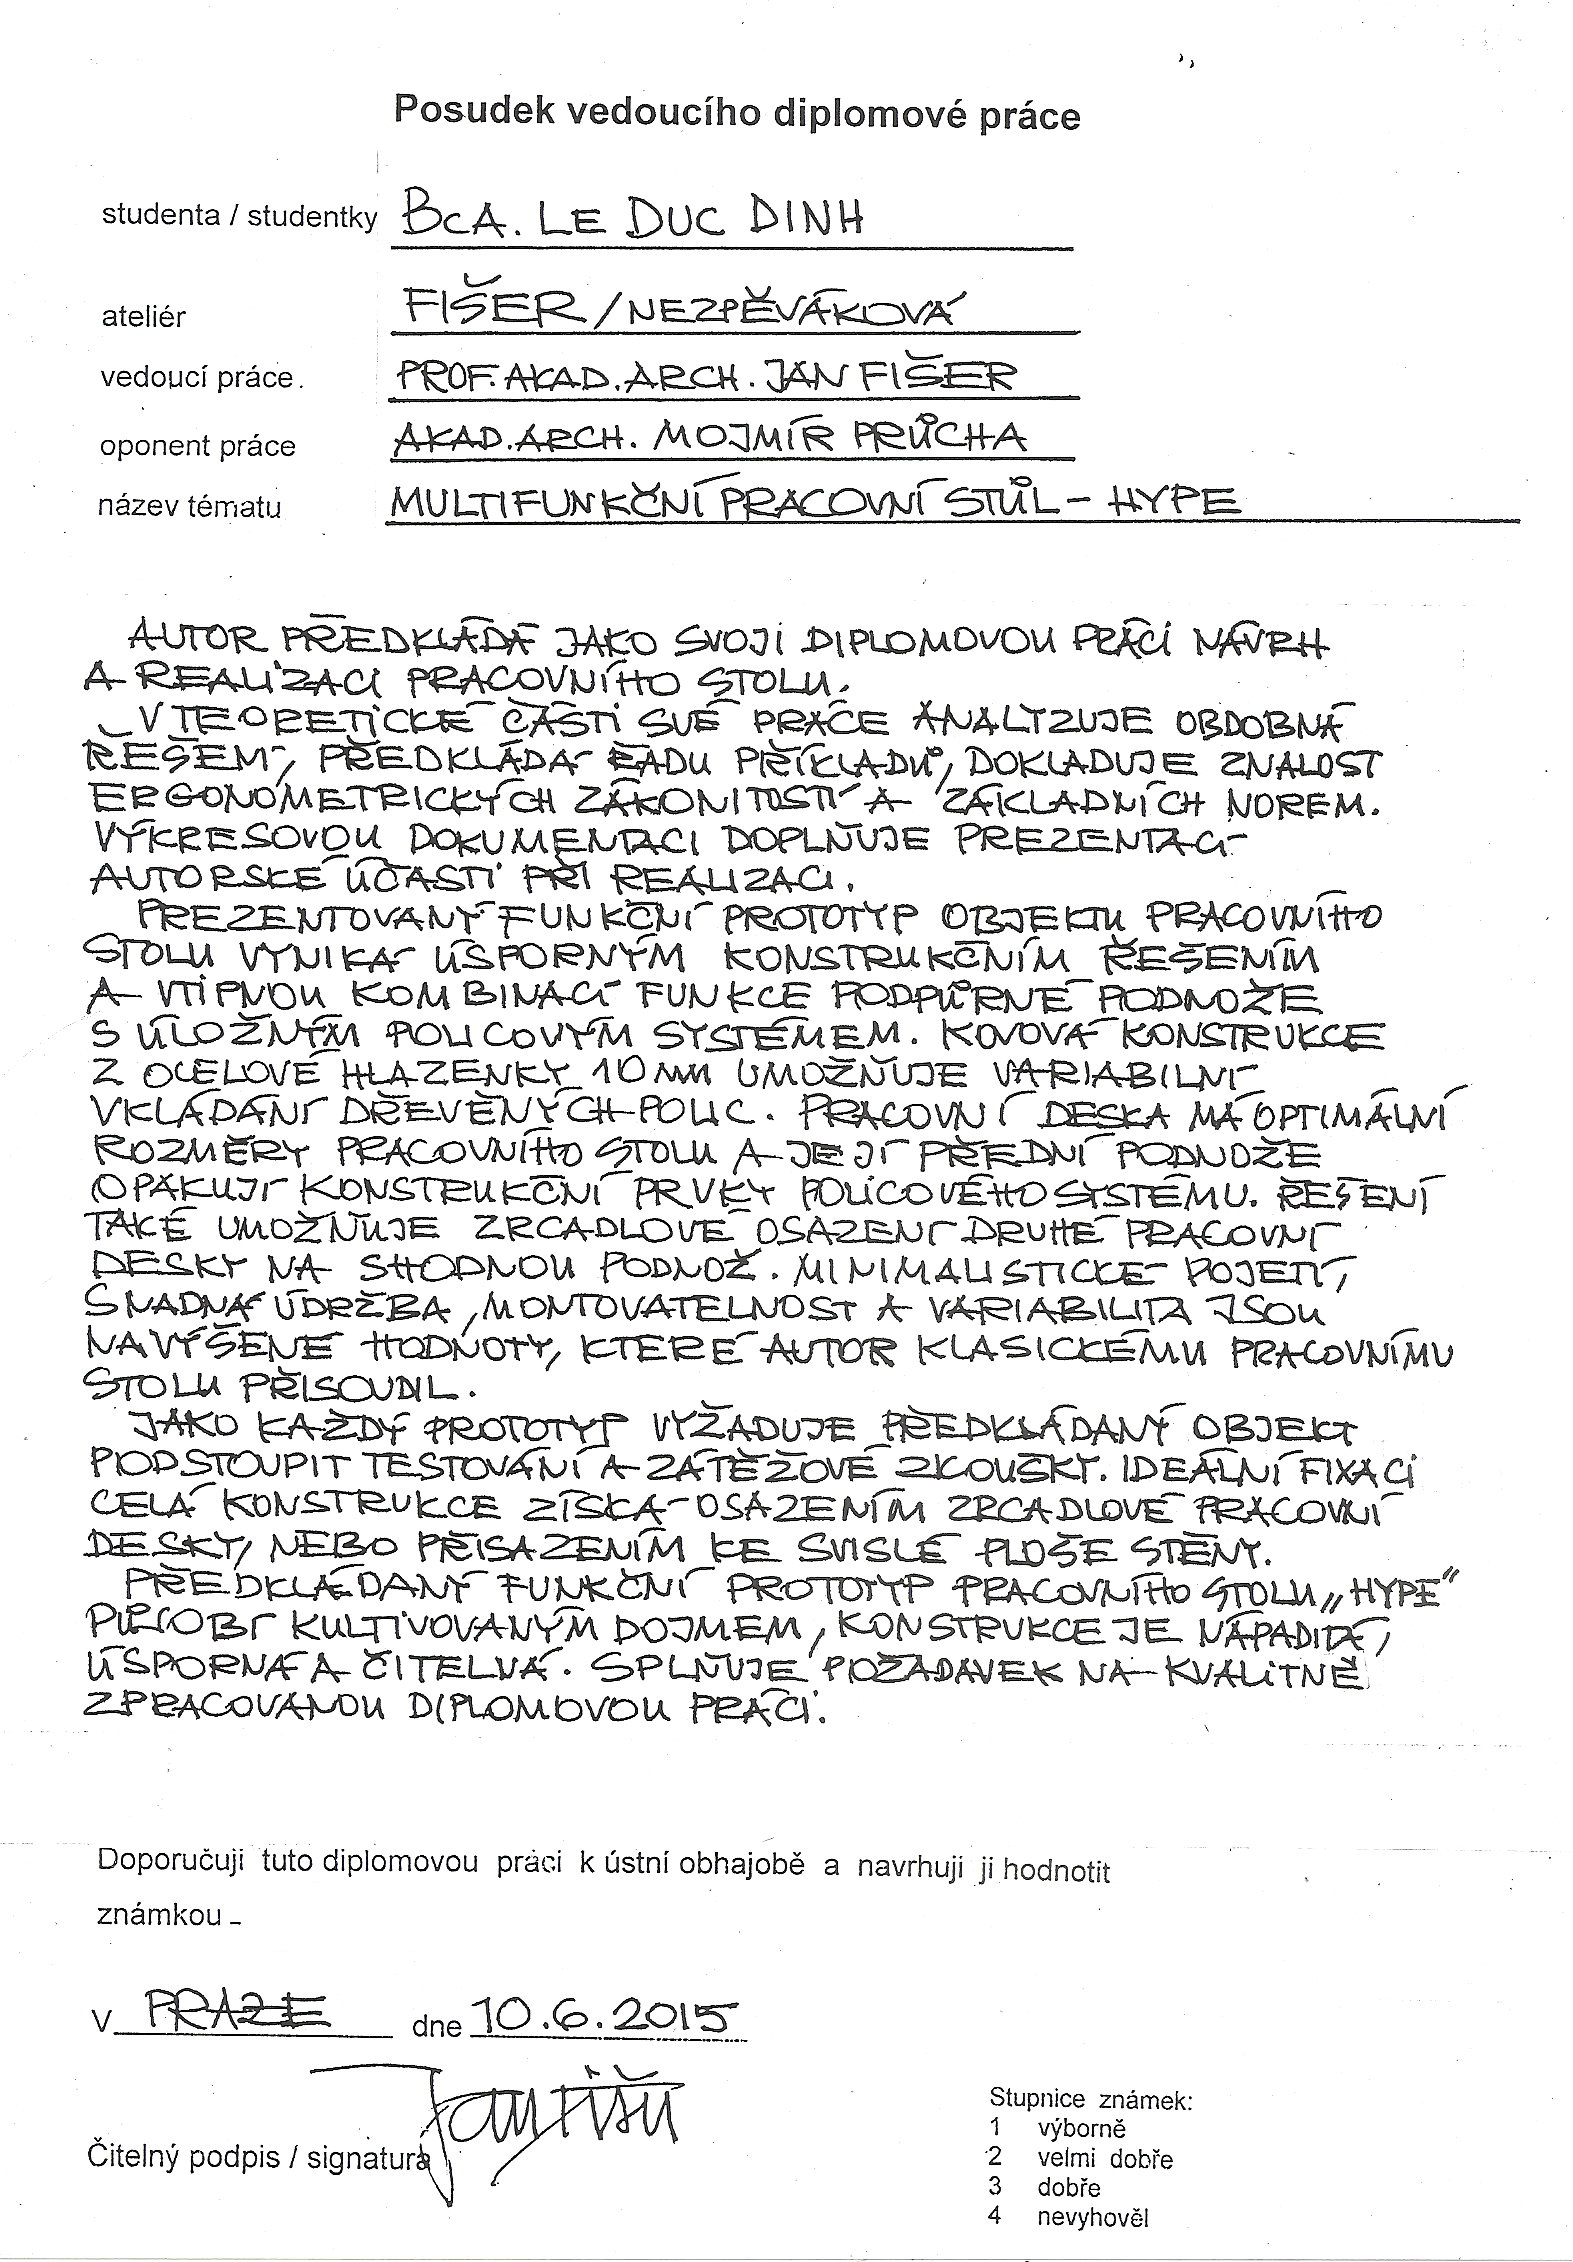 Posudek vedoucího diplomové práce
studenta / studentky BcA. LE DUC DINH
ateliér FIŠER / NEZPĚVÁKOVÁ
vedoucí práce. PROF. AKAD. ARCH. JAN FIŠER
oponent práce AKAD. ARCH. MOJMÍR PRŮCHA
název tématu MULTIFUNKČNÍ PRACOVNÍ STŮL - HYPE
AUTOR PŘEDKLÁDÁ JAKO SVOJI DIPLOMOVOU PRÁCI NÁVRH
A REALIZACI PRACOVNÍHO STOLU.
V TEORETICKÉ ČÁSTI SVÉ PRÁCE ANALYZUJE OBDOBNÁ
ŘEŠENÍ, PŘEDKLÁDÁ ŘADU PŘÍKLADŮ, DOKLADUJE ZNALOST
ERGONOMETRICKÝCH ZÁKONITOSTÍ A ZÁKLADNÍCH NOREM.
VÝKRESOVOU DOKUMENTACI DOPLŇUJE PREZENTACÍ
AUTORSKÉ ÚČASTI PŘI REALIZACI.
PREZENTOVANÝ FUNKČNÍ PROTOTYP OBJEKTU PRACOVNÍHO
STOLU VYNIKÁ ÚSPORNÝM KONSTRUKČNÍM ŘEŠENÍM
A VTIPNOU KOMBINACÍ FUNKCE PODPŮRNÉ PODNOŽE
S ÚLOŽNÝM POLICOVÝM SYSTÉMEM. KOVOVÁ KONSTRUKCE
Z OCELOVÉ HLAZENKY 10 MM UMOŽŇUJE VARIABILNÍ
VKLÁDÁNÍ DŘEVĚNÝCH POLIC. PRACOVNÍ DESKA MÁ OPTIMÁLNÍ
ROZMĚRY PRACOVNÍHO STOLU A JEJÍ PŘEDNÍ PODNOŽE
OPAKUJÍ KONSTRUKČNÍ PRVKY POLICOVÉHO SYSTÉMU. ŘEŠENÍ
TAKÉ UMOŽŇUJE ZRCADLOVÉ OSAZENÍ DRUHÉ PRACOVNÍ
DESKY NA SHODNOU PODNOŽ. MINIMALISTICKÉ POJETÍ,
SNADNÁ ÚDRŽBA, MONTOVATELNOST A VARIABILITA JSOU
NAVÝŠENÉ HODNOTY, KTERÉ AUTOR KLASICKÉMU PRACOVNÍMU
STOLU PŘISOUDIL.
JAKO KAŽDÝ PROTOTYP VYŽADUJE PŘEDKLÁDANÝ OBJEKT
PODSTOUPIT TESTOVÁNÍ A ZÁTĚŽOVÉ ZKOUŠKY. IDEÁLNÍ FIXACI
CELÁ KONSTRUKCE ZÍSKÁ OSAZENÍM ZRCADLOVÉ PRACOVNÍ
DESKY, NEBO PŘISAZENÍM KE SVISLÉ PLOŠE STĚNY.
PŘEDKLÁDANÝ FUNKČNÍ PROTOTYP PRACOVNÍHO STOLU „HYPE“
PŮSOBÍ KULTIVOVANÝM DOJMEM, KONSTRUKCE JE NÁPADITÁ,
ÚSPORNÁ A ČITELNÁ. SPLŇUJE POŽADAVEK NA KVALITNĚ
ZPRACOVANOU DIPLOMOVOU PRÁCI.
Doporučuji tuto diplomovou práci k ústní obhajobě a navrhuji ji hodnotit
známkou -
V PRAZE dne 10.6.2015
Čitelný podpis / signatura Jan Fišer
Stupnice známek:
1 výborně
2 velmi dobře
3 dobře
4 nevyhověl